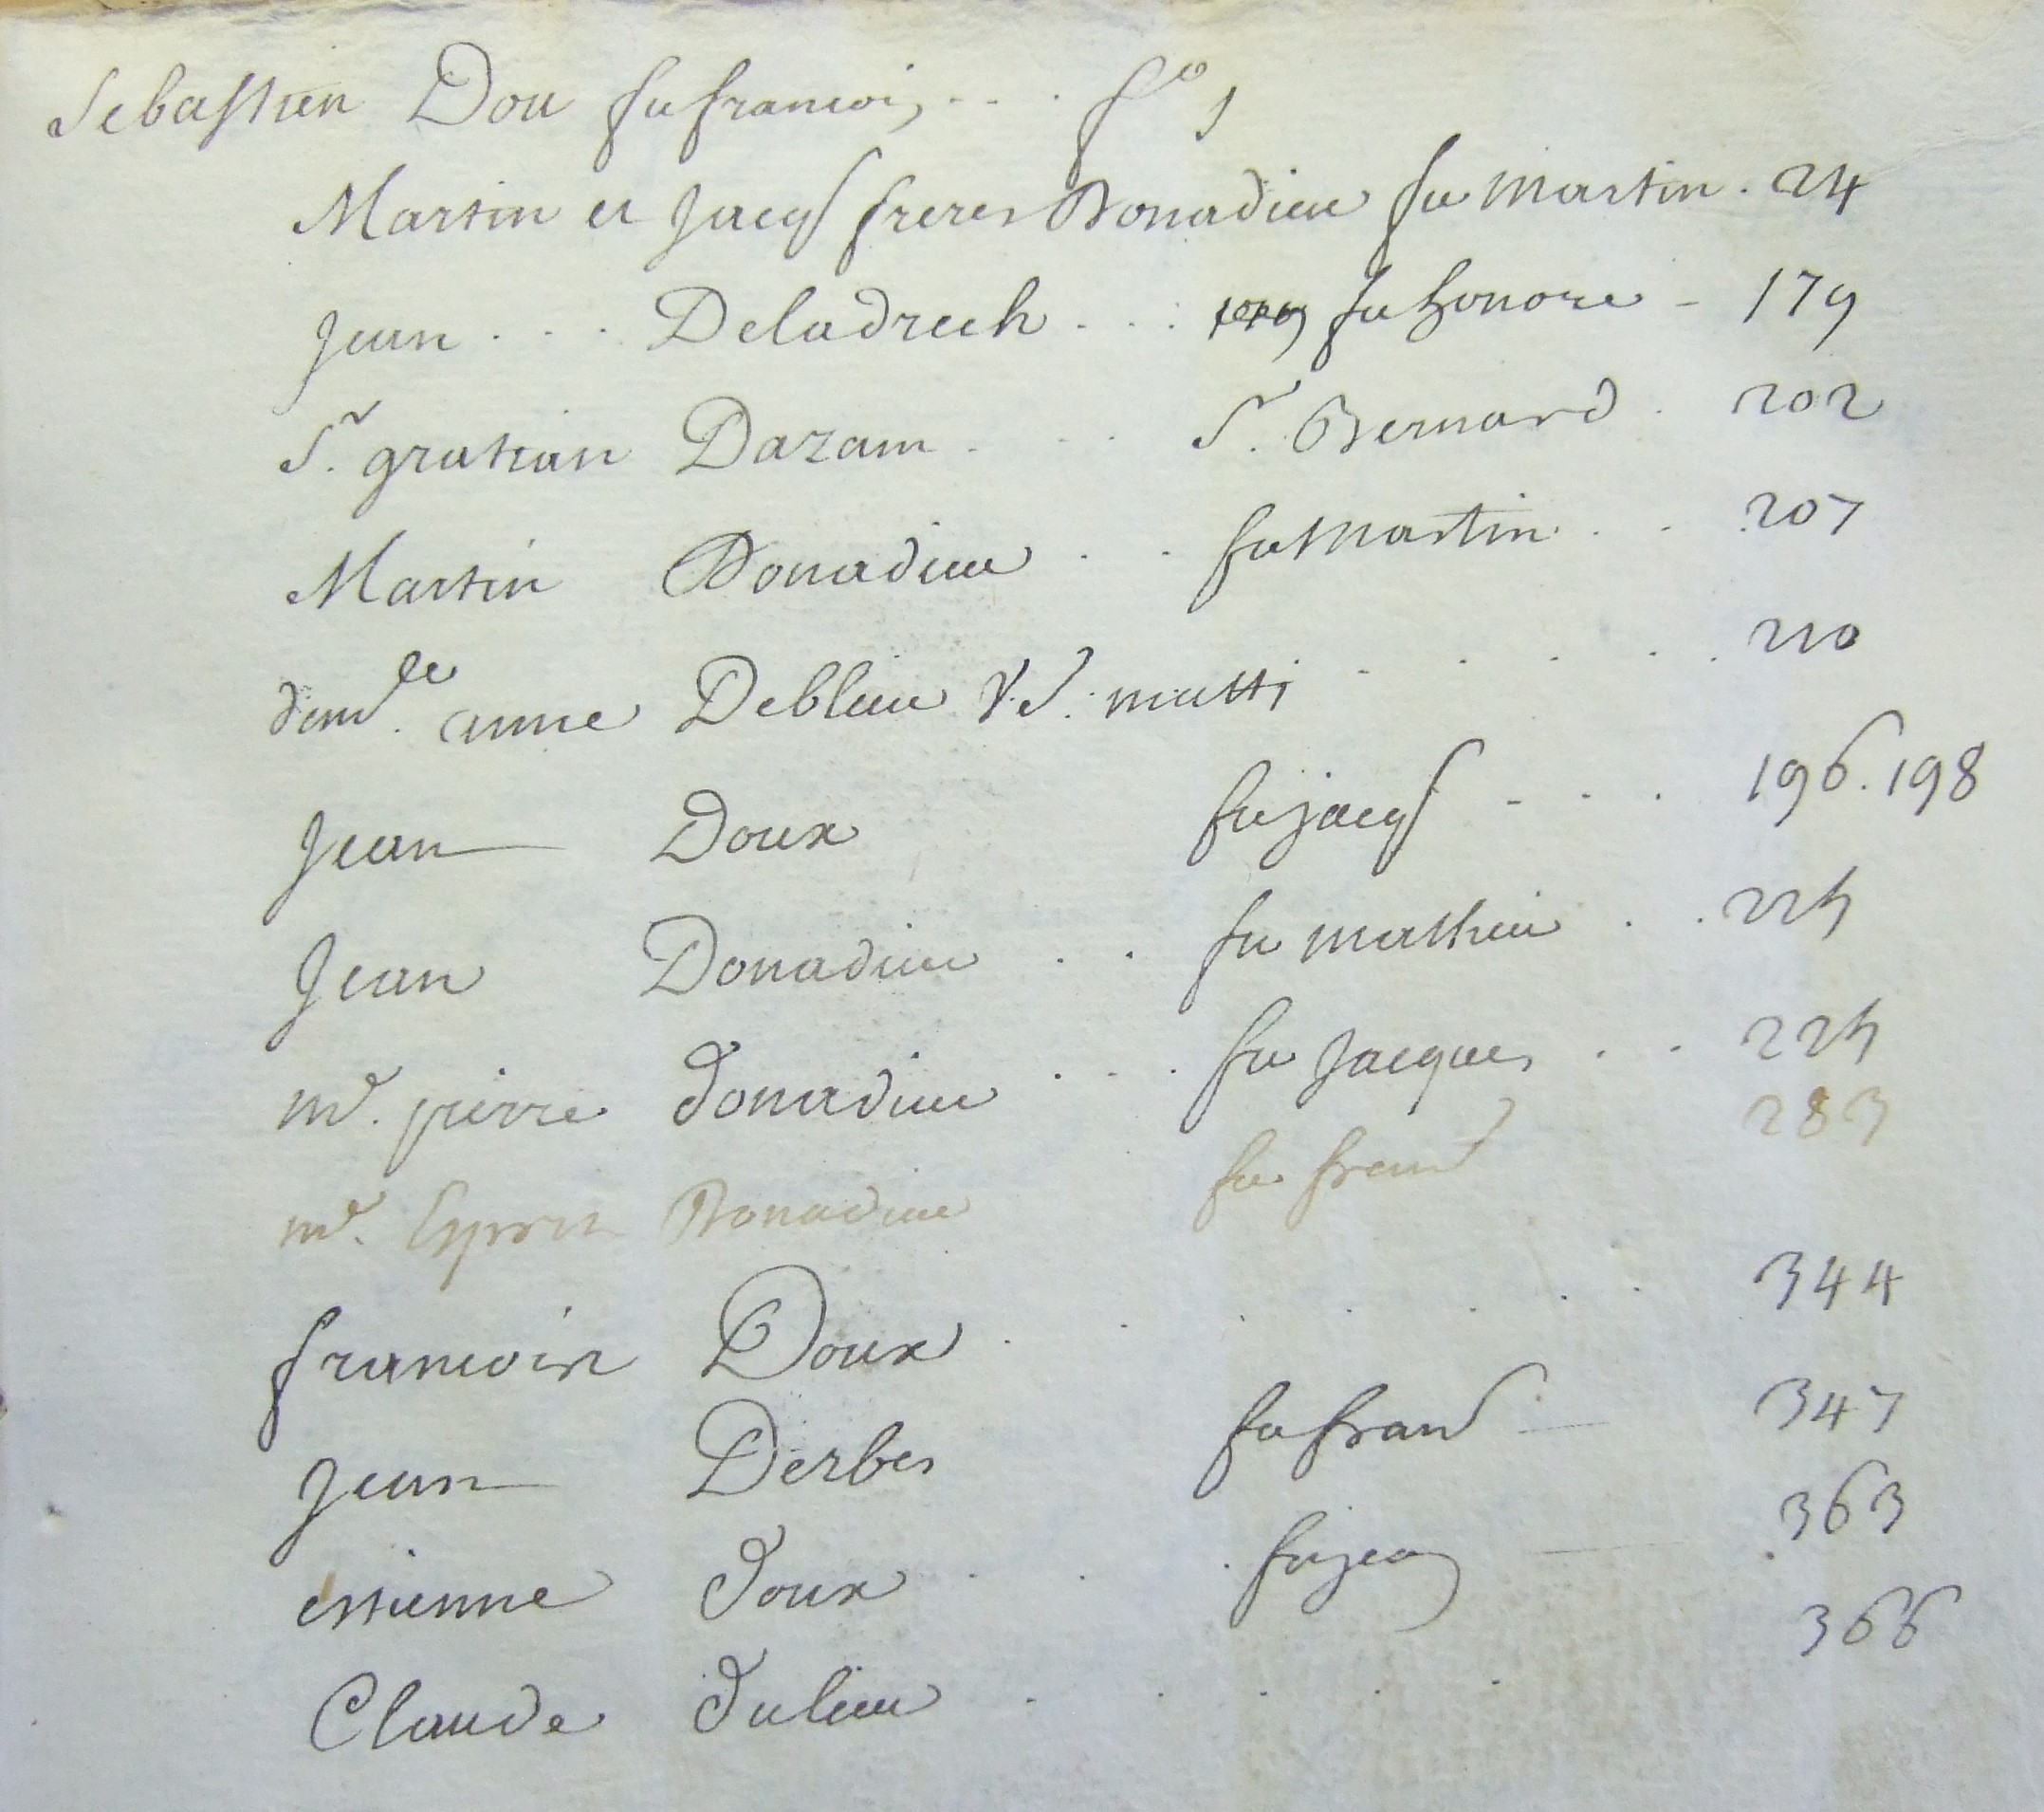 Sebastien Dou fu francois . . . f.o 1
Martin et Jacqs freres Donadieu fu martin . 24
Jean . . . Deladrech . . . fu honore - 179
Sr. gratian Dazam . . . Sr. Bernard . 202
Martin Donadieu . . fu Martin . . 207
demlle. anne Deblieu V. S. matti . . . . . 210
Jean Doux fu jacqs - . . 196. 198
Jean Donadieu . . fu mathieu . . 225
me. pierre donadieu . . . fu Jacques . . 225
me. Esprit Donadieu fu frans 283
francois Doux . . . . . . 344
Jean Derbes fu frans 347
estienne doux . . . fu jean 363
Claude dulieu . . . . . 366